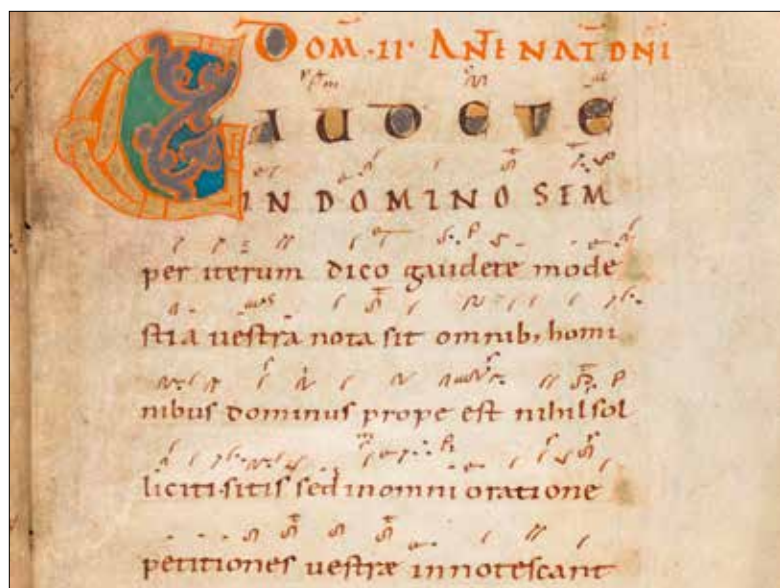 DOM̄·II· ANTE NAT̄ DN̄I
GAUDETE
IN DOMINO SEM
per iterum dico gaudete mode
stia uestrā nota sit omnib; homi
nibus dominus prope est nihil sol
liciti·sitis sed in omni oratione
petitiones uestræ innotescant